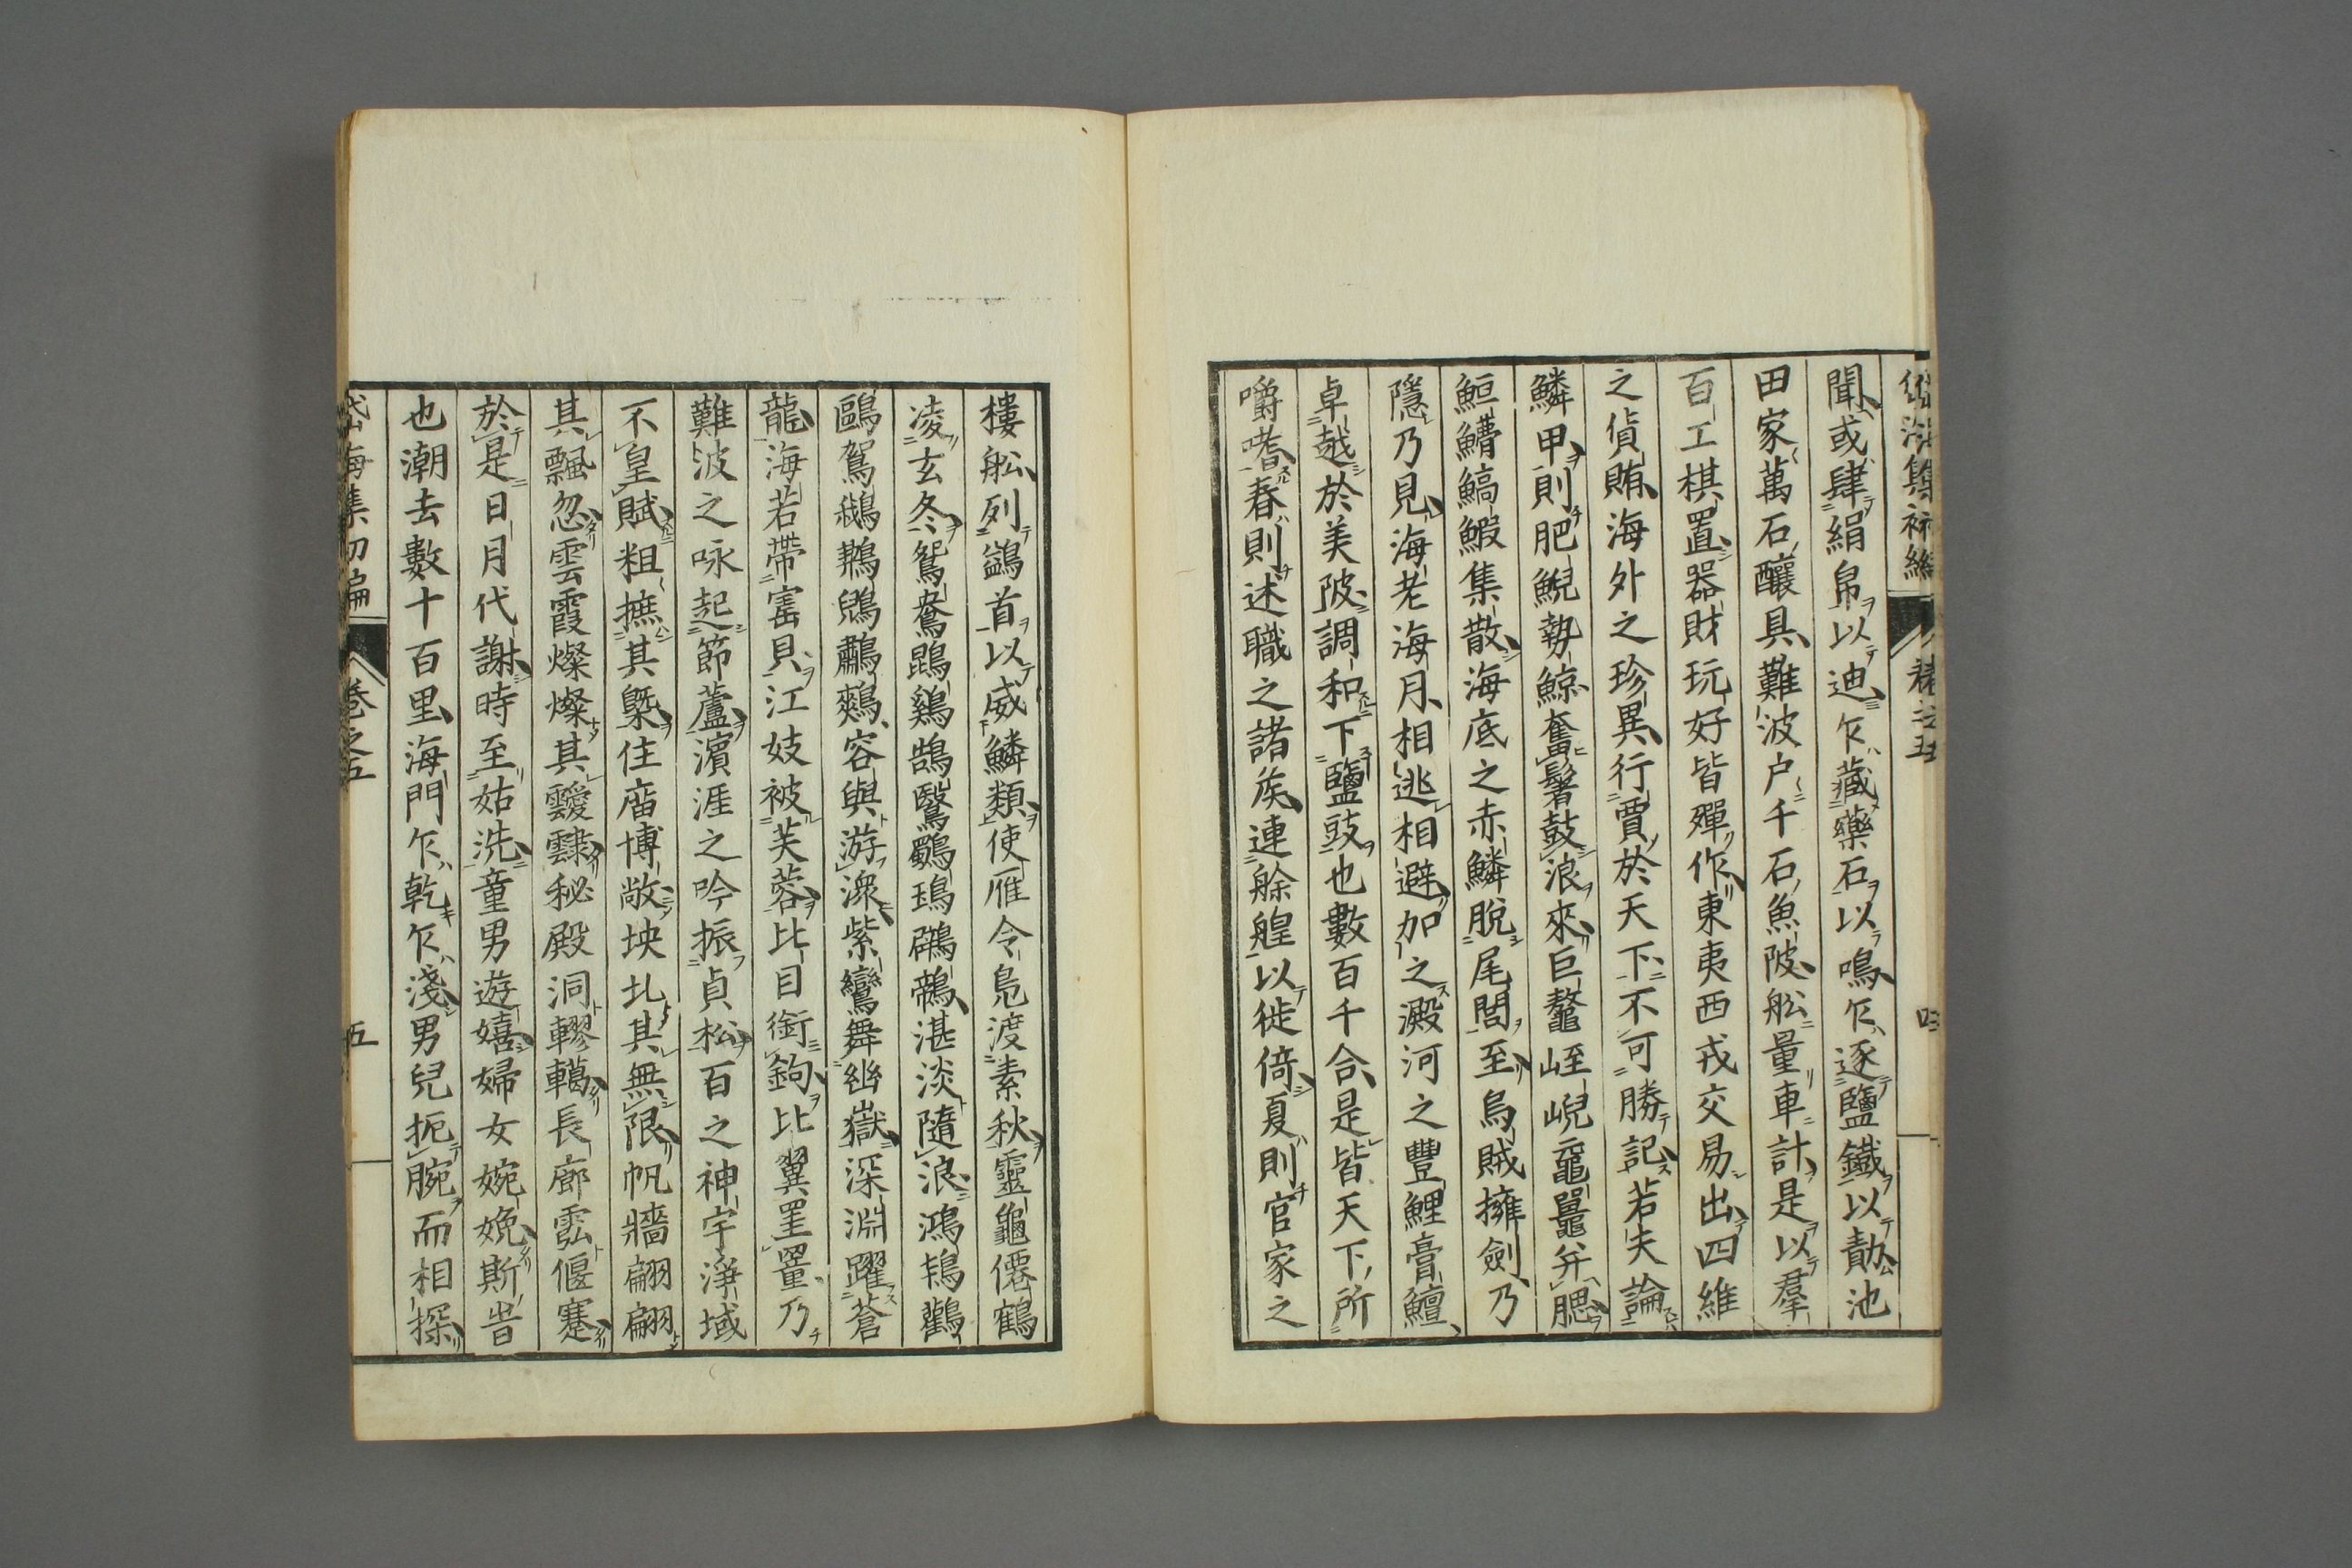 聞或肆絹帛以迪乍藏藥石以鳴乍逐鹽鐵以勣池
田家萬石釀具難波户千石魚陂舩量車計是以羣
百工棋置器財玩好皆殫作東夷西戎交易出四維
之貨賄海外之珍異行賈於天下不可勝記若夫論
鱗甲則肥鯢勢鯨奮鬐鼓浪來巨鼇峌崐黿鼉弁腮
鮔鰽鰝鰕集散海底之赤鱗脫尾閭至烏賊擁劍乃
隱乃見海老海月相逃相避加之澱河之豐鯉膏鱣
卓越於美陂調和下鹽豉也數百千合是皆天下所
嚼嗜春則述職之諸矦連艅艎以徙倚夏則官家之
樓舩列鷁首以威鱗類使雁令凫渡素秋靈龜僊鶴
凌玄冬鴛鴦鵾鷄鵠鷖鸀鳿鸊鷉湛淡隨浪鴻鴇鸛
鷗鴐鵝鷫鷞容與游深紫鸞舞幽嶽深淵躍蒼
龍海若帶寚貝江妓被芙蓉比目銜鉤比翼罣罿乃
難波之咏起節蘆濵涯之吟振貞松百之神宇淨域
不皇賦粗摭其槩住庿博敞坱圠其無限帆牆翩翩
其飄忽雲霞燦燦其靉靆秘殿洞轇轕長廊霐偃蹇
於是日月代謝時至姑洗童男遊嬉婦女婉娩斯旹
也潮去數十百里海門乍乾乍淺男兒扼腕而相探
岱海集初編 卷之五 五